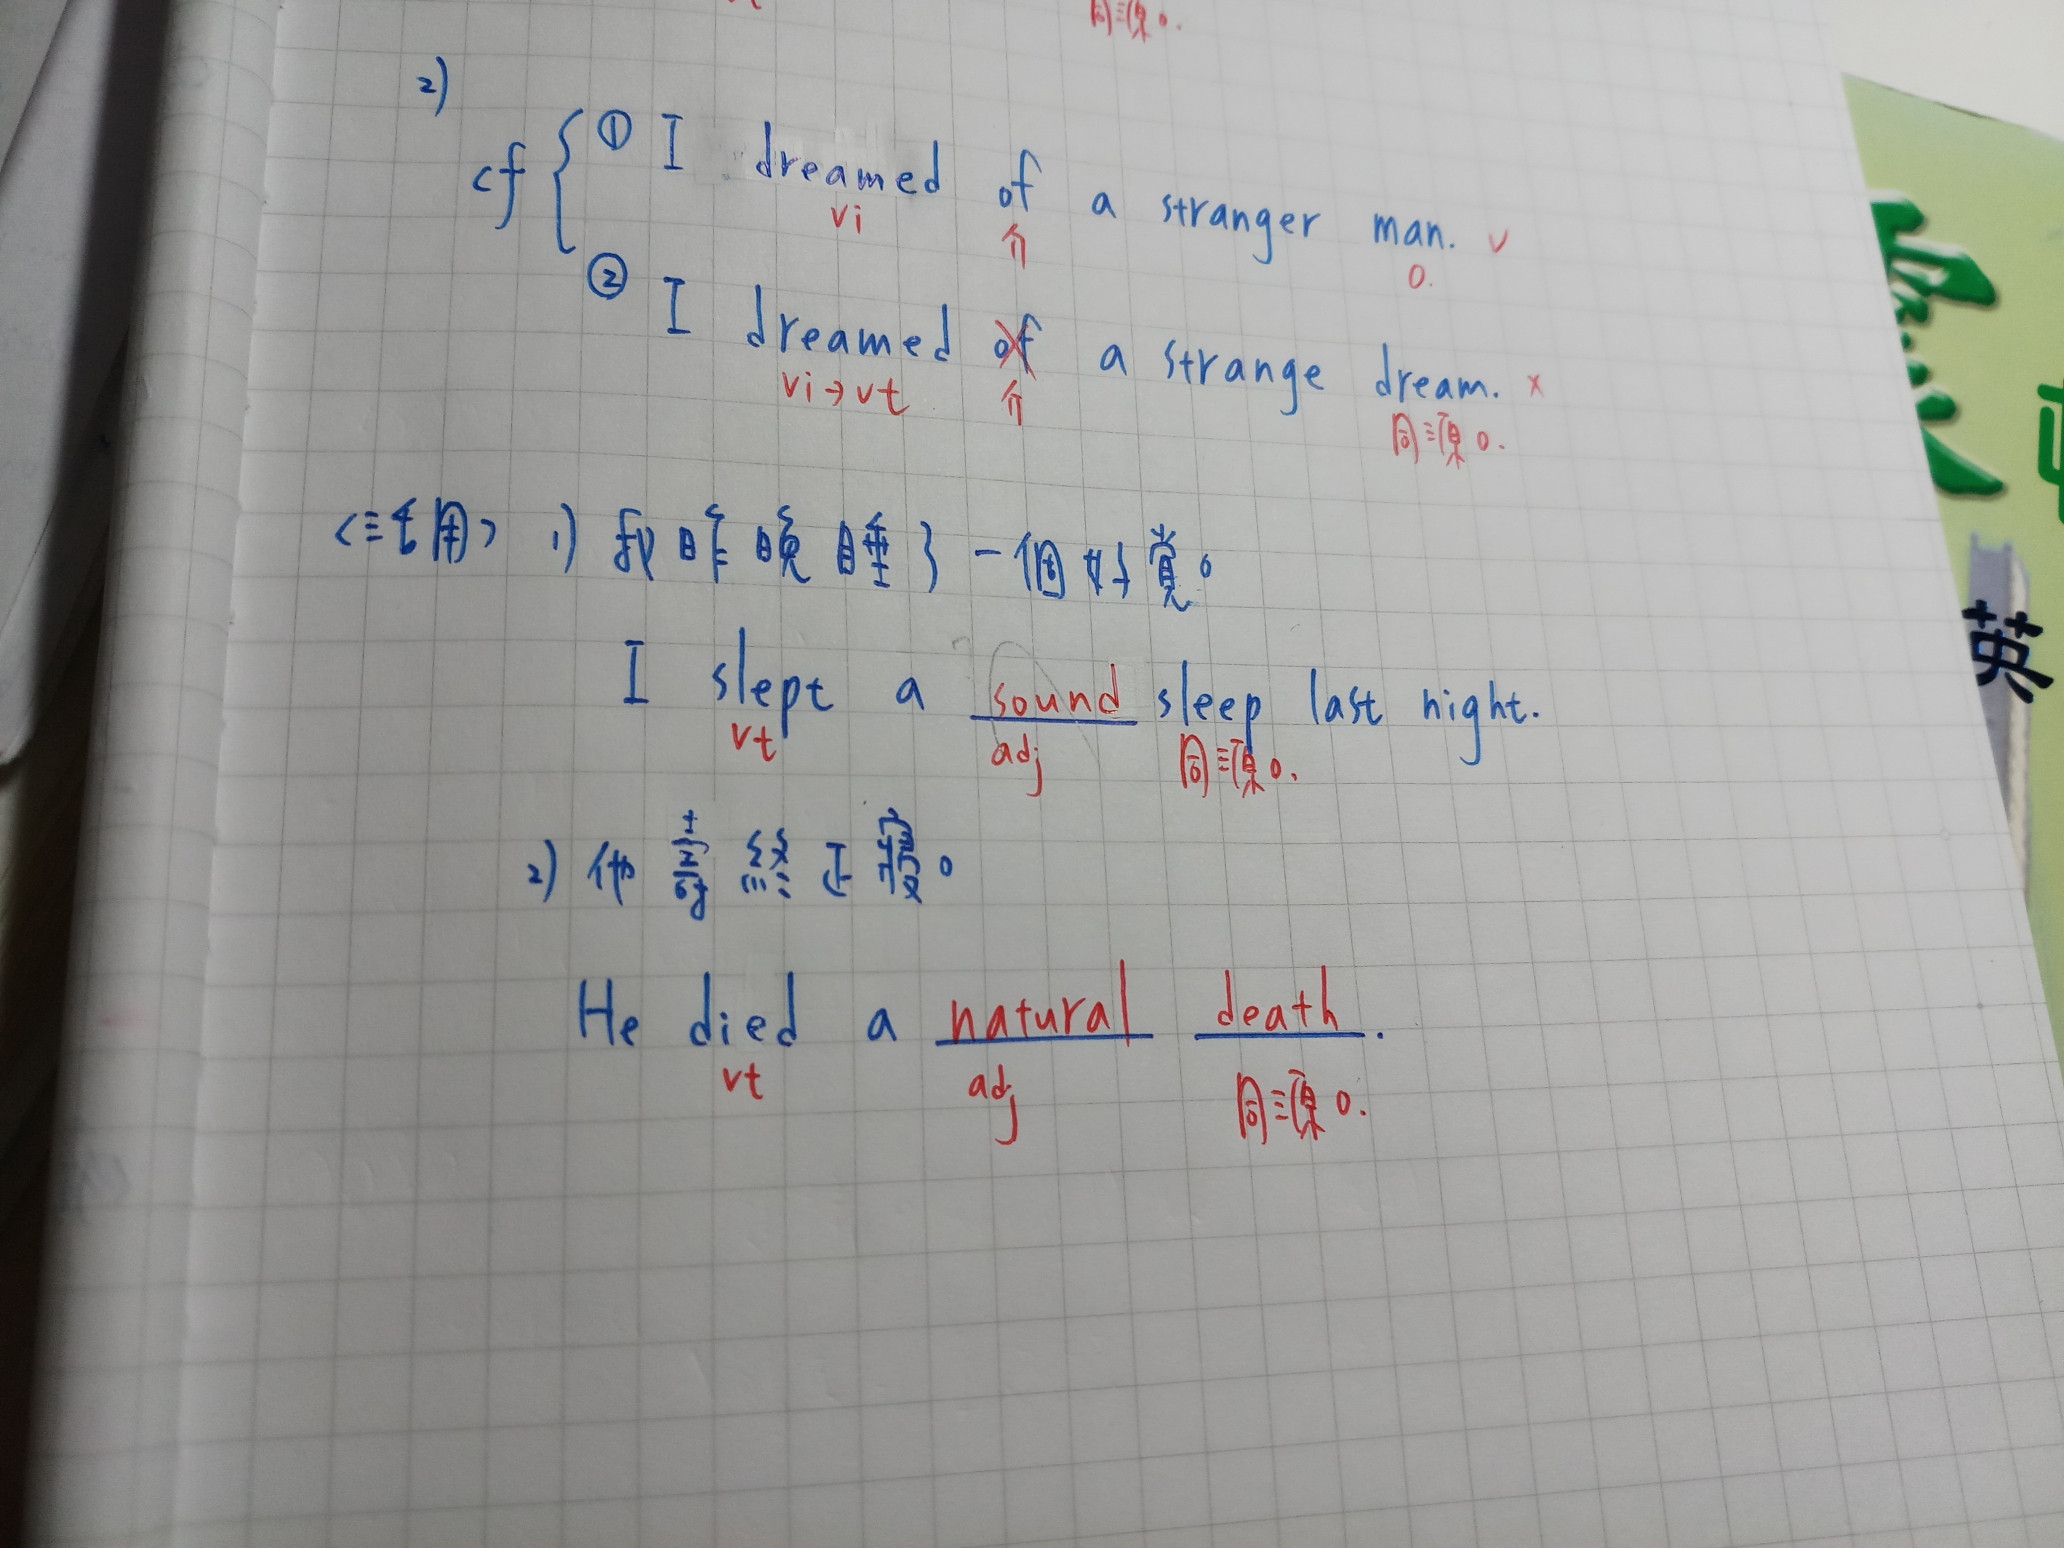 同源o.
2)
cf ① I dreamed of a stranger man. v
vi 介 o.
② I dreamed of a strange dream. x
vi→vt 介 同源o.
<活用> 1) 我昨晚睡了一個好覺。
I slept a sound sleep last night.
vt adj 同源o.
2) 他壽終正寢。
He died a natural death.
vt adj 同源o.
英